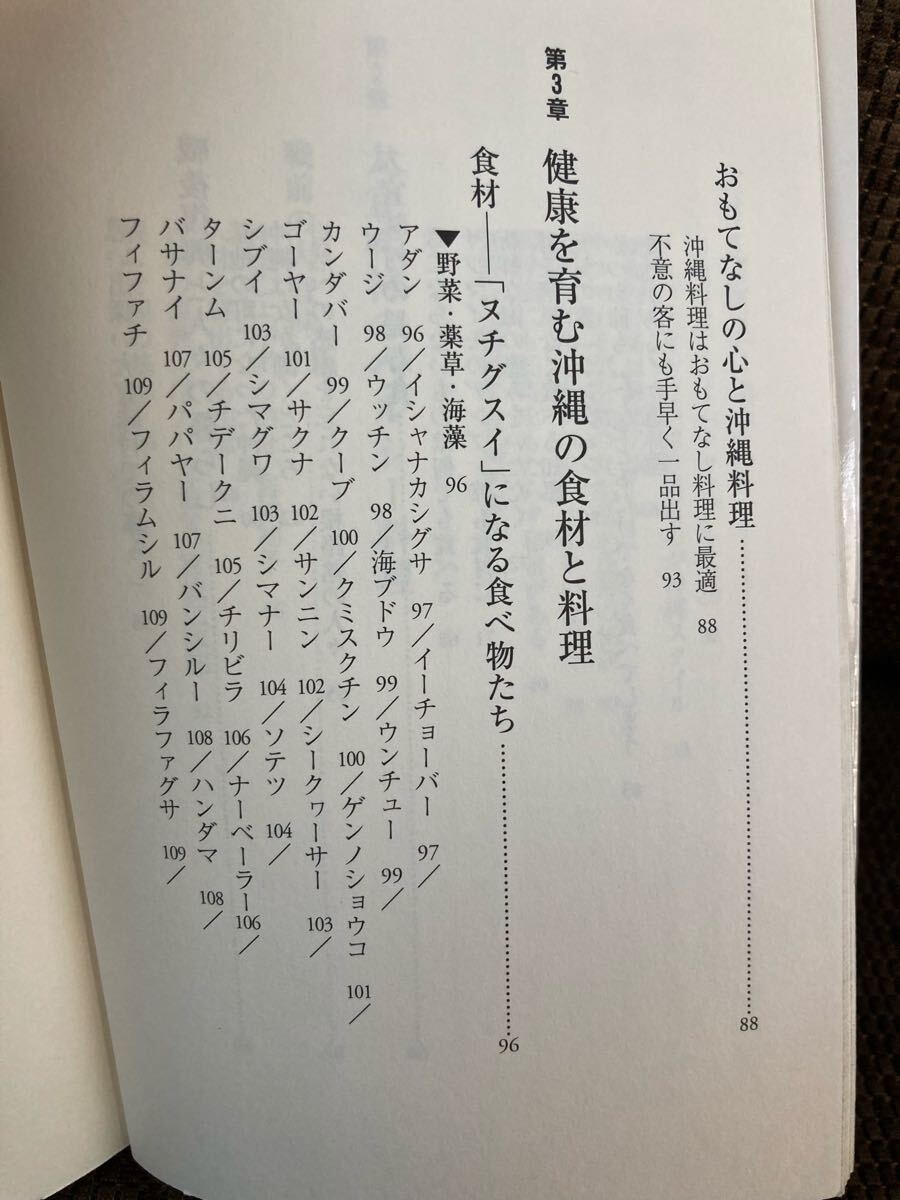 おもてなしの心と沖縄料理………………………………88
沖縄料理はおもてなし料理に最適 88
不意の客にも手早く一品出す 93
第3章 健康を育む沖縄の食材と料理
食材――「ヌチグスイ」になる食べ物たち………………………96
▼野菜・薬草・海藻 96
アダン 96／イシャナカシグサ 97／イーチョーバー 97／
ウージ 98／ウッチン 98／海ブドウ 99／ウンチュー 99／
カンダバー 99／クーブ 100／クミスクチン 100／ゲンノショウコ 101／
ゴーヤー 101／サクナ 102／サンニン 102／シークヮーサー 103／
シブイ 103／シマグワ 103／シマナー 104／ソテツ 104／
ターンム 105／チデークニ 105／チリビラ 106／ナーベーラー 106／
バサナイ 107／パパヤー 107／バンシルー 108／ハンダマ 108／
フィファチ 109／フィラムシル 109／フィラファグサ 109／